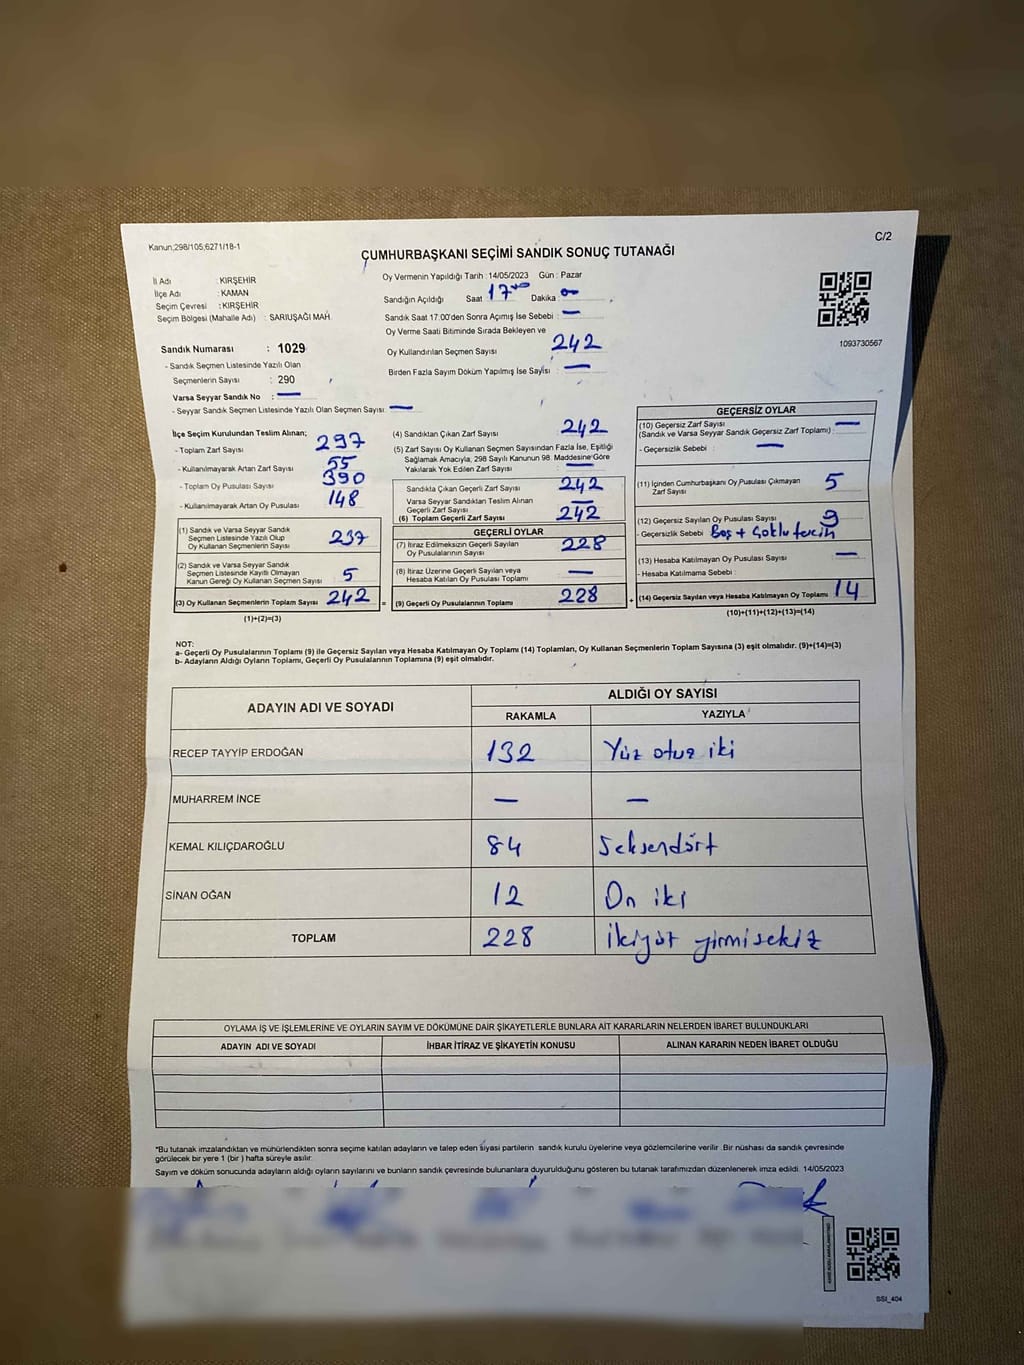 Kanun;298/105;6271/18-1
C/2
ÇUMHURBAŞKANI SEÇİMİ SANDIK SONUÇ TUTANAĞI
İl Adı : KIRŞEHİR
İlçe Adı : KAMAN
Seçim Çevresi : KIRŞEHİR
Seçim Bölgesi (Mahalle Adı) : SARIUŞAĞI MAH.
Sandık Numarası : 1029
- Sandık Seçmen Listesinde Yazılı Olan
Seçmenlerin Sayısı : 290
Varsa Seyyar Sandık No : —
- Seyyar Sandık Seçmen Listesinde Yazılı Olan Seçmen Sayısı : —
Oy Vermenin Yapıldığı Tarih : 14/05/2023 Gün : Pazar
Sandığın Açıldığı Saat 17 Dakika :
Sandık Saat 17.00'den Sonra Açımış İse Sebebi : —
Oy Verme Saati Bitiminde Sırada Bekleyen ve
Oy Kullandırılan Seçmen Sayısı 242
Birden Fazla Sayım Döküm Yapılmış İse Sayısı : —
1093730567
İlçe Seçim Kurulundan Teslim Alınan;
- Toplam Zarf Sayısı 297
- Kullanılmayarak Artan Zarf Sayısı 55
- Toplam Oy Pusulası Sayısı 390
- Kullanılmayarak Artan Oy Pusulası 148
(1) Sandık ve Varsa Seyyar Sandık
Seçmen Listesinde Yazılı Olup
Oy Kullanan Seçmenlerin Sayısı 237
(2) Sandık ve Varsa Seyyar Sandık
Seçmen Listesinde Kayıtlı Olmayan
Kanun Gereği Oy Kullanan Seçmen Sayısı 5
(3) Oy Kullanan Seçmenlerin Toplam Sayısı 242 =
(1)+(2)=(3)
(4) Sandıktan Çıkan Zarf Sayısı 242
(5) Zarf Sayısı Oy Kullanan Seçmen Sayısından Fazla İse, Eşitliği
Sağlamak Amacıyla, 298 Sayılı Kanunun 98. Maddesine Göre
Yakılarak Yok Edilen Zarf Sayısı —
Sandıkla Çıkan Geçerli Zarf Sayısı 242
Varsa Seyyar Sandıktan Teslim Alınan
Geçerli Zarf Sayısı —
(6) Toplam Geçerli Zarf Sayısı 242
GEÇERLİ OYLAR
(7) İtiraz Edilmeksizin Geçerli Sayılan
Oy Pusulalarının Sayısı 228
(8) İtiraz Üzerine Geçerli Sayılan veya
Hesaba Katılan Oy Pusulası Toplamı —
(9) Geçerli Oy Pusulalarının Toplamı 228 +
GEÇERSİZ OYLAR
(10) Geçersiz Zarf Sayısı —
(Sandık ve Varsa Seyyar Sandık Geçersiz Zarf Toplamı) :
- Geçersizlik Sebebi : —
(11) İçinden Cumhurbaşkanı Oy Pusulası Çıkmayan
Zarf Sayısı 5
(12) Geçersiz Sayılan Oy Pusulası Sayısı 9
- Geçersizlik Sebebi Boş + Çoklu tercih
(13) Hesaba Katılmayan Oy Pusulası Sayısı —
- Hesaba Katılmama Sebebi :
(14) Geçersiz Sayılan veya Hesaba Katılmayan Oy Toplamı 14
(10)+(11)+(12)+(13)=(14)
NOT:
a- Geçerli Oy Pusulalarının Toplamı (9) ile Geçersiz Sayılan veya Hesaba Katılmayan Oy Toplamı (14) Toplamları, Oy Kullanan Seçmenlerin Toplam Sayısına (3) eşit olmalıdır. (9)+(14)=(3)
b- Adayların Aldığı Oyların Toplamı, Geçerli Oy Pusulalarının Toplamına (9) eşit olmalıdır.
ADAYIN ADI VE SOYADI ALDIĞI OY SAYISI
RAKAMLA YAZIYLA
RECEP TAYYİP ERDOĞAN 132 Yüz otuz iki
MUHARREM İNCE — —
KEMAL KILIÇDAROĞLU 84 Seksendört
SİNAN OĞAN 12 On iki
TOPLAM 228 İkiyüz yirmisekiz
OYLAMA İŞ VE İŞLEMLERİNE VE OYLARIN SAYIM VE DÖKÜMÜNE DAİR ŞİKAYETLERLE BUNLARA AİT KARARLARIN NELERDEN İBARET BULUNDUKLARI
ADAYIN ADI VE SOYADI İHBAR İTİRAZ VE ŞİKAYETİN KONUSU ALINAN KARARIN NEDEN İBARET OLDUĞU
"Bu tutanak imzalandıktan ve mühürlendikten sonra seçime katılan adayların ve talep eden siyasi partilerin sandık kurulu üyelerine veya gözlemcilerine verilir. Bir nüshası da sandık çevresinde
görülecek bir yere 1 (bir ) hafta süreyle asılır.
Sayım ve döküm sonucunda adayların aldığı oyların sayılarını ve bunların sandık çevresinde bulunanlara duyurulduğunu gösteren bu tutanak tarafımızdan düzenlenerek imza edildi. 14/05/2023
SSI_404